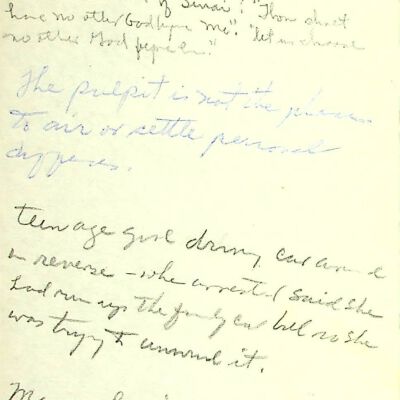 of Sinai: "Thou shalt
have no other God before me". "let us choose
no other God before him."
The pulpit is not the place
to air or settle personal
differences.
teen age girl driving car around
in reverse - when arrested said she
had run up the family car bill so she
was trying to unwind it.